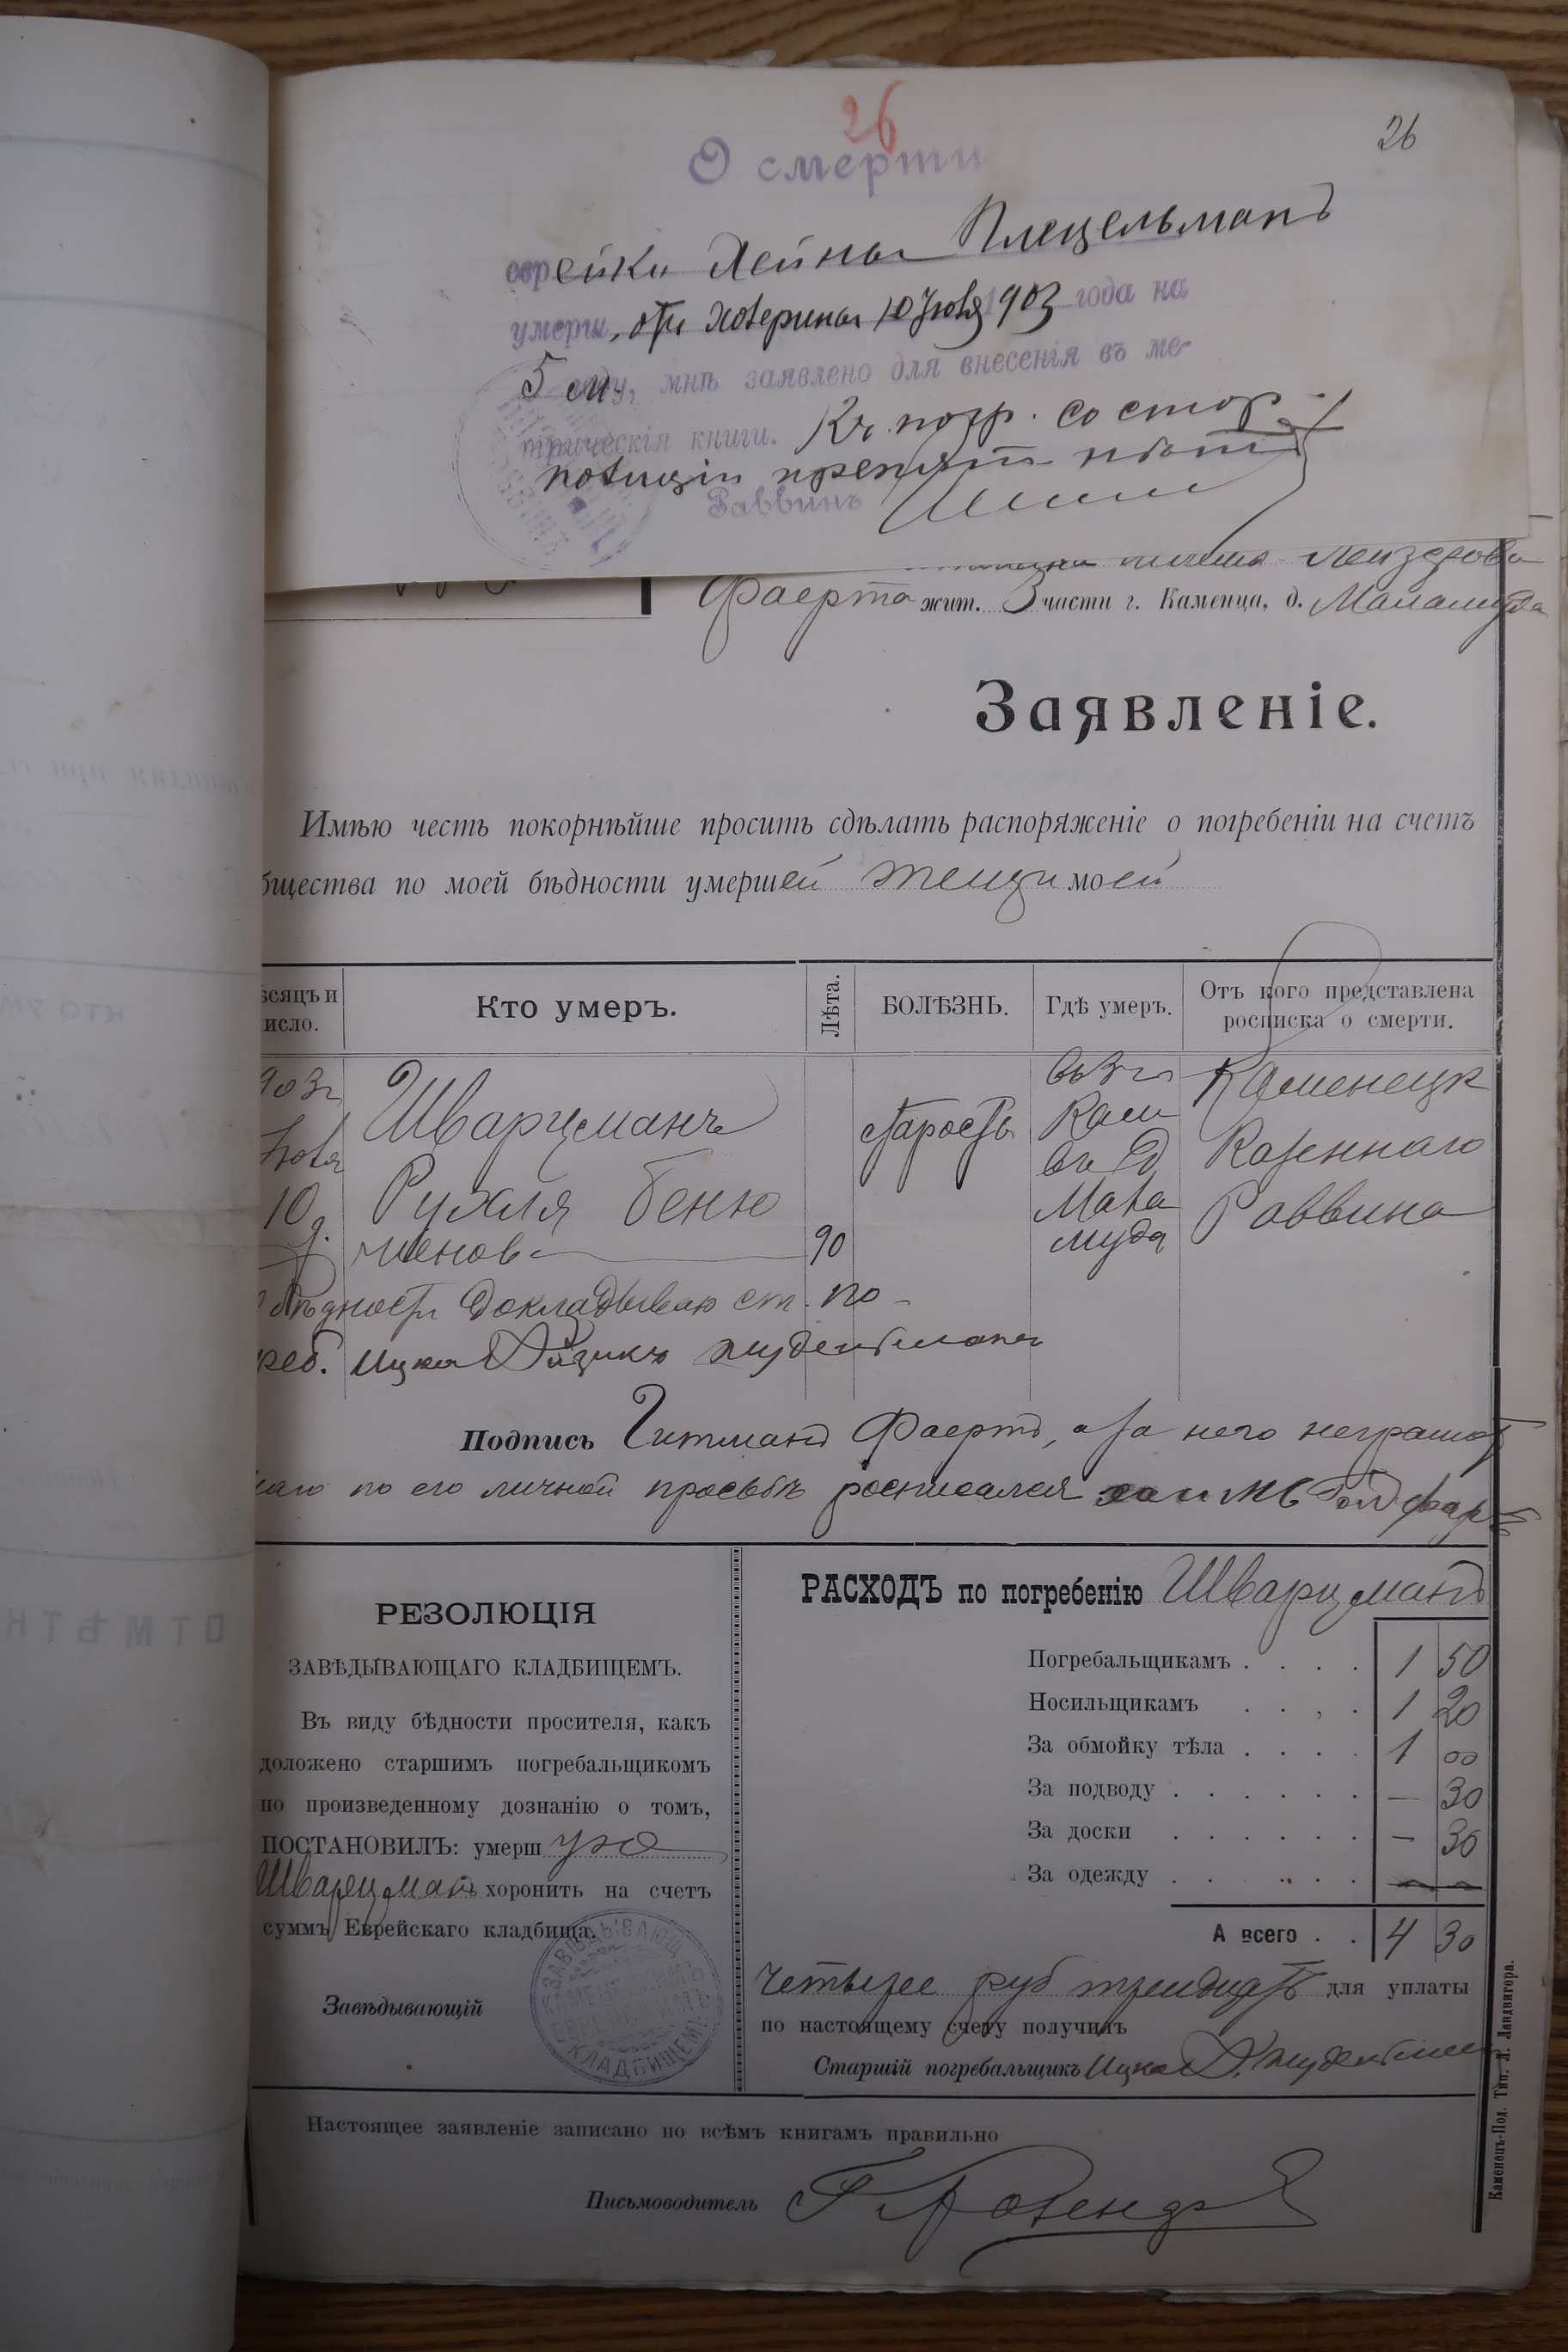 26
26
О смерти
еврейки Хейны Плецельманъ
умерш. отъ холерины 10 Іюля 1903 года на
5 м. году, мнѣ заявлено для внесенія въ ме-
трическія книги. Къ погр. со стор.
полиціи препят. нѣтъ
Раввинъ
Лейзерова
Фаерта жит. 3 части г. Каменца, д. Маламуда
Заявленіе.
Имѣю честь покорнѣйше просить сдѣлать распоряженіе о погребеніи на счетъ
бщества по моей бѣдности умершей моей
ѣсяцъ и
исло.
Кто умеръ.
Лѣта.
БОЛѢЗНЬ.
Гдѣ умеръ.
Отъ кого представлена
росписка о смерти.
903 г
Іюля
10 д.
Шварцманъ
Рухля Беню
миновна
90
старость
въ 3 ч
Кам
въ д
Мала
муда
Каменецк
Казеннаго
Раввина
бѣдности докладываю ст. по-
реб. Ицко Айзикъ
Подпись Гитманъ Фаертъ, а за него неграмот
наго по его личной просьбѣ росписался Хаимъ Голдфарб
РЕЗОЛЮЦІЯ
ЗАВѢДЫВАЮЩАГО КЛАДБИЩЕМЪ.
Въ виду бѣдности просителя, какъ
доложено старшимъ погребальщикомъ
по произведенному дознанію о томъ,
ПОСТАНОВИЛЪ: умерш ую
Шварцманъ хоронить на счетъ
суммъ Еврейскаго кладбища.
Завѣдывающій
ЗАВѢДЫВАЮЩ.
КАМЕНЕЦКИМЪ
ЕВРЕЙСКИМЪ
КЛАДБИЩЕМЪ
РАСХОДЪ по погребенію Шварцманъ
Погребальщикамъ . . . . 1 50
Носильщикамъ . . . . 1 20
За обмойку тѣла . . . . 1 00
За подводу . . . . . . — 30
За доски . . . . . . — 30
За одежду . . . . . .
А всего . . 4 30
Четыре руб тридцать для уплаты
по настоящему счету получилъ
Старшій погребальщикъ Ицко А.
Настоящее заявленіе записано по всѣмъ книгамъ правильно
Письмоводитель
Каменецъ-Под. Тип. Л. Ландвигера.